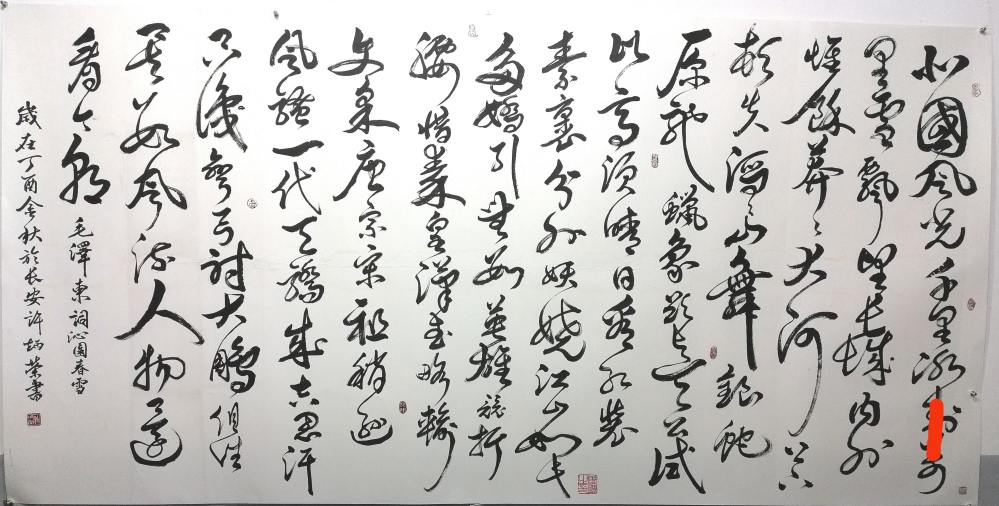 北國風光千里冰
里雪飄望長城内外
惟餘莽〻大河上下
頓失滔〻山舞銀蛇
原馳蠟象欲与天試
比高須晴日看红裝
素裹分外妖嬈江山如此
多嬌引無數英雄競折
腰惜秦皇漢武略輸
文采唐宗宋祖稍遜
風騷一代天驕成吉思汗
只識彎弓射大鵰俱往
矣數風流人物還
看今朝 毛澤東詞沁園春雪
歲在丁酉金秋於长安許炳榮書